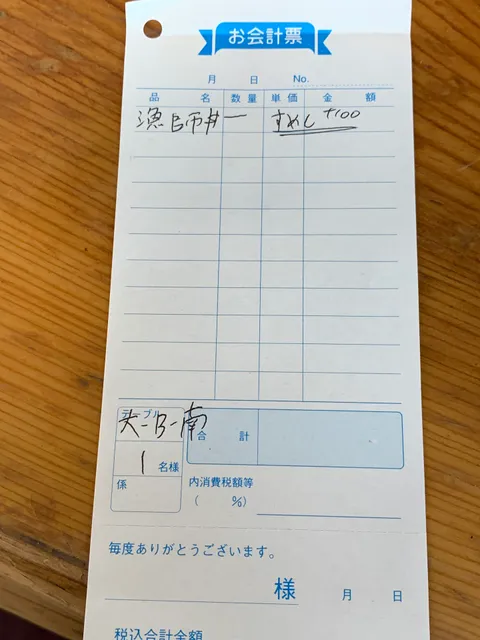 お会計票
月 日 No.
品 名 数量 単価 金 額
漁師丼 一 すめし +100
テーブル
大-B-南
合 計
1 名様
係
内消費税額等
( %)
毎度ありがとうございます。
様 月 日
税込合計金額